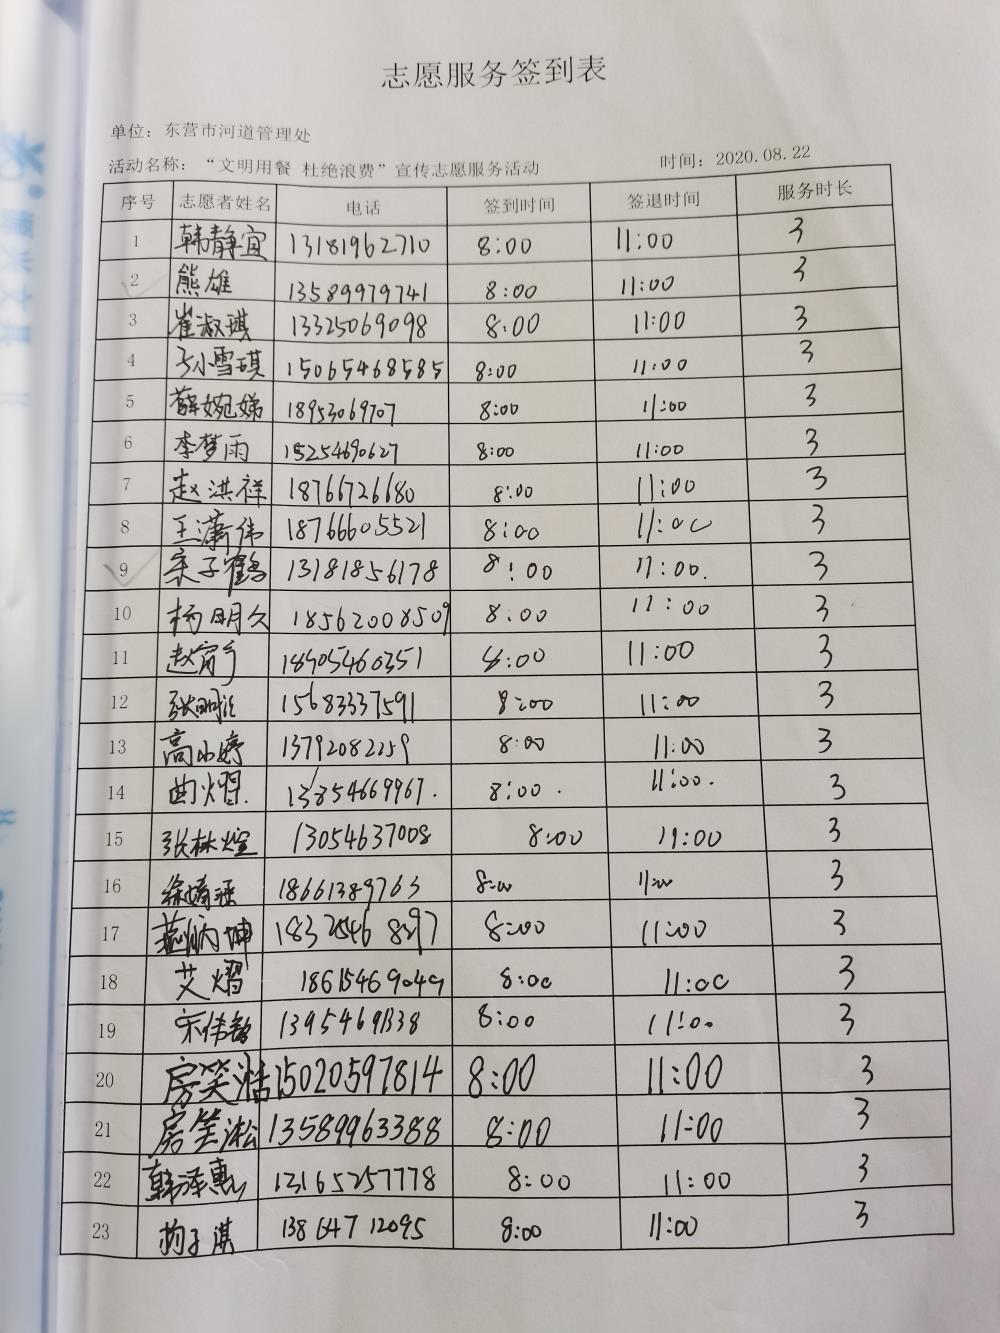 志愿服务签到表
单位：东营市河道管理处
活动名称：“文明用餐 杜绝浪费”宣传志愿服务活动 时间：2020.08.22
序号 志愿者姓名 电话 签到时间 签退时间 服务时长
1 韩静宜 13181962710 8:00 11:00 3
2 熊雄 13589979741 8:00 11:00 3
3 崔淑琪 13325069098 8:00 11:00 3
4 孙雪琪 15065468585 8:00 11:00 3
5 薛婉娣 18953069707 8:00 11:00 3
6 李梦雨 15254690627 8:00 11:00 3
7 赵洪祥 18766726680 8:00 11:00 3
8 王潇伟 18766605521 8:00 11:00 3
9 子鹤 13181856178 8:00 11:00. 3
10 杨明久 18562008509 8:00 11:00 3
11 赵 18905460351 8:00 11:00 3
12 张明 15683337591 8:00 11:00 3
13 高小婷 13792082259 8:00 11:00 3
14 曲熠. 13854669967. 8:00. 11:00. 3
15 张林煊 13054637008 8:00 11:00 3
16 徐 18661389763 8:00 11:00 3
17 燕炳坤 18325468297 8:00 11:00 3
18 艾熠 18615469049 8:00 11:00 3
19 宋伟 8:00 11:00 3
20 房笑湉 15020597814 8:00 11:00 3
21 房笑淞 13589963388 8:00 11:00 3
22 韩泽惠 13165257778 8:00 11:00 3
23 子淇 13864712095 8:00 11:00 3